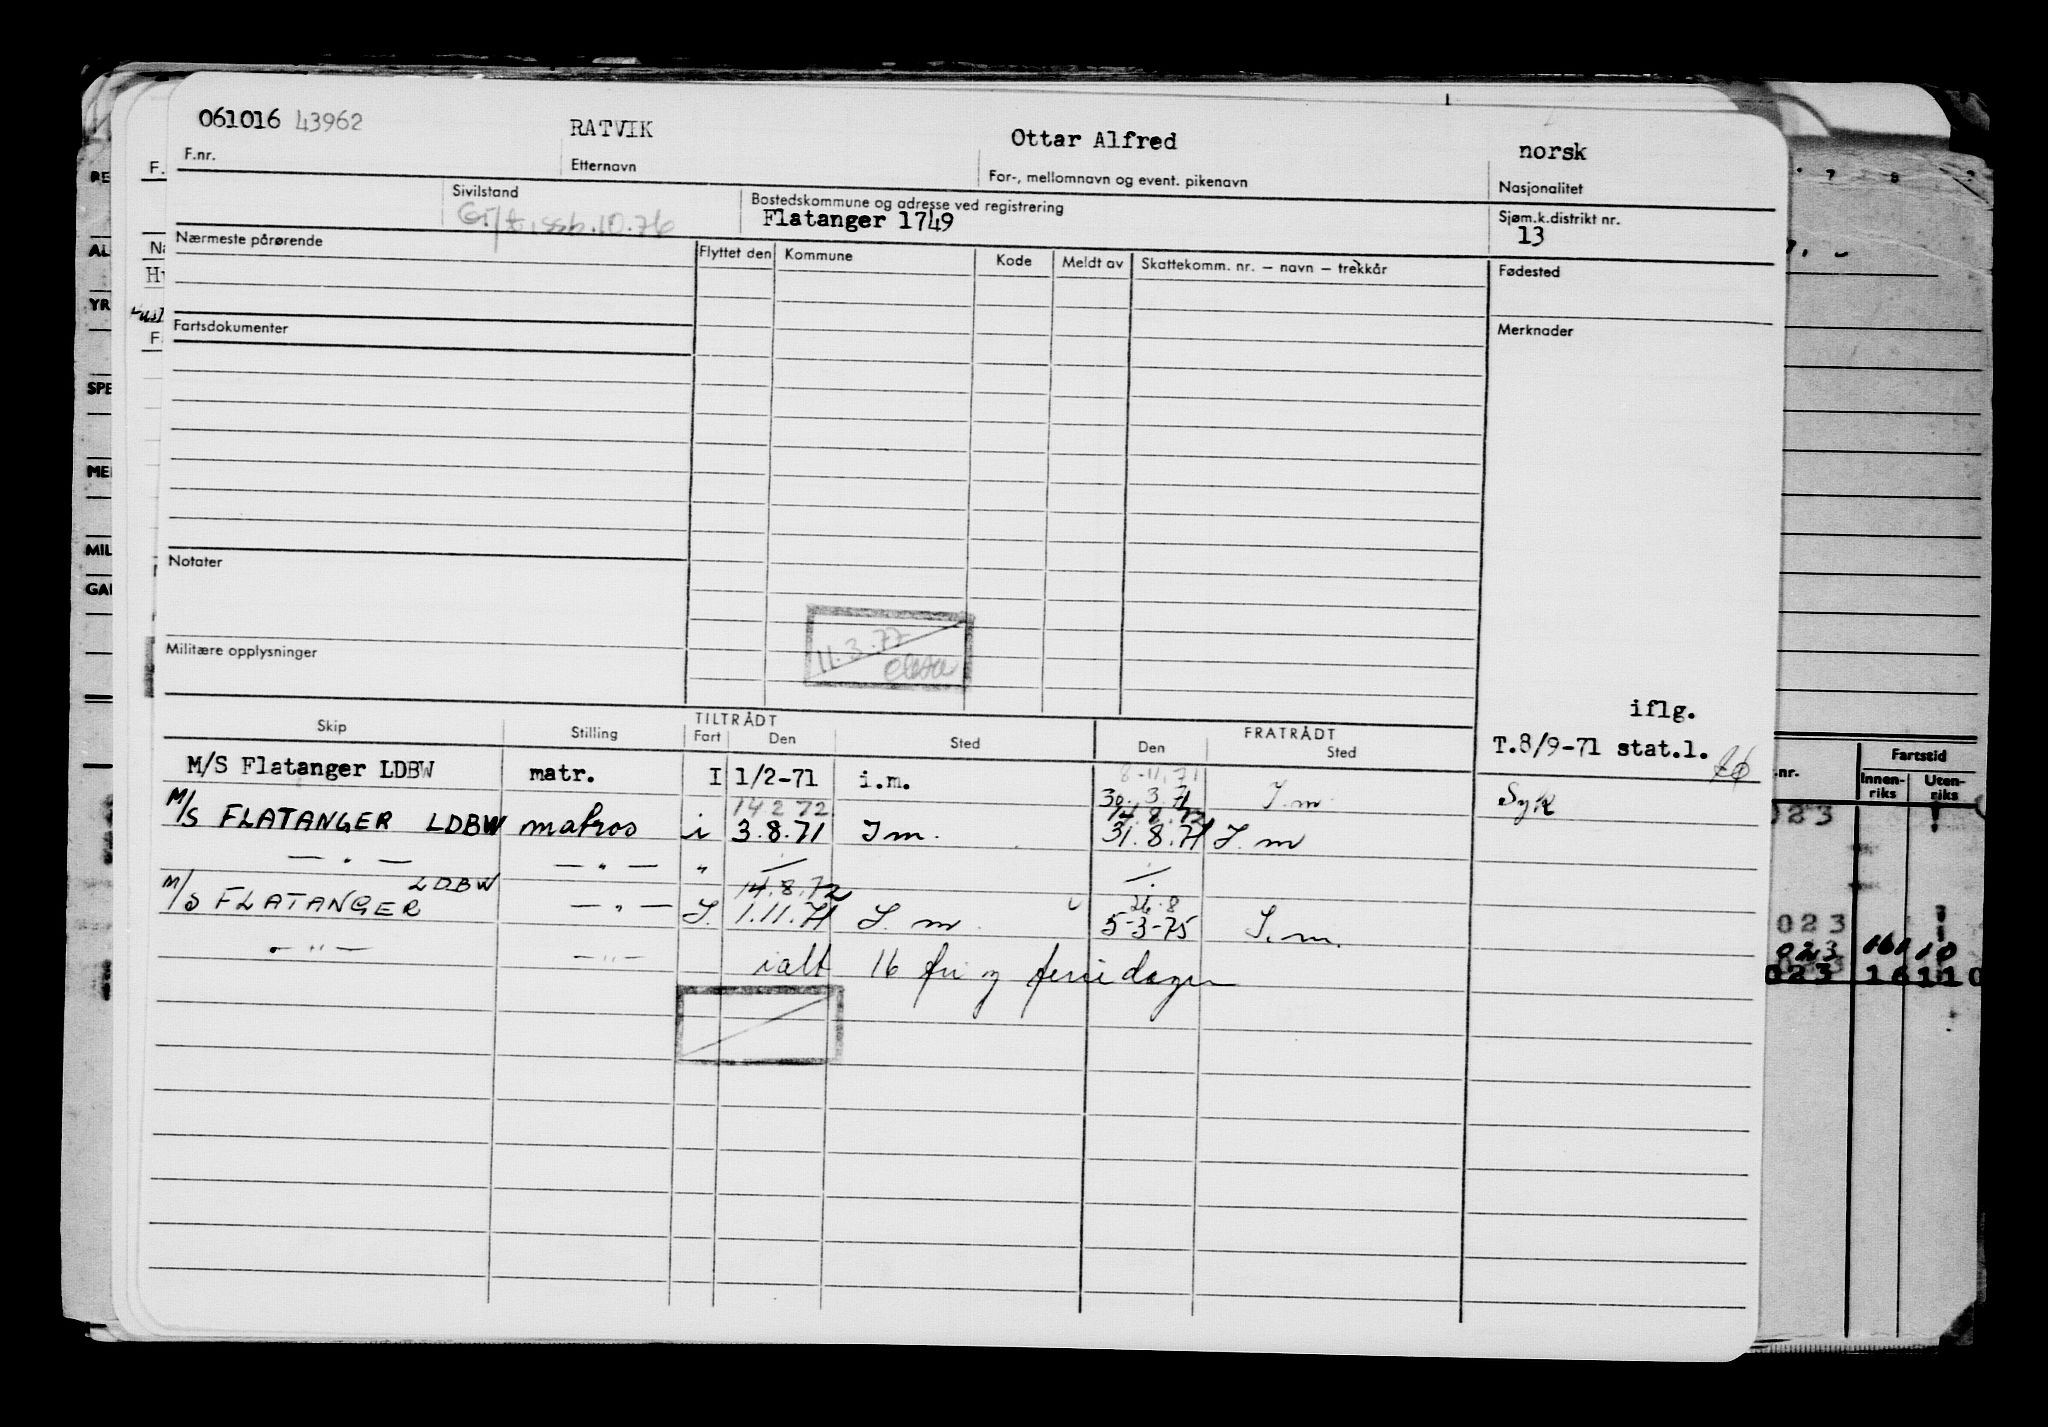 061016 43962 RATVIK Ottar Alfred norsk
F.nr. Etternavn For-, mellomnavn og event. pikenavn Nasjonalitet
Sivilstand Bostedskommune og adresse ved registrering Sjøm.k.distrikt nr.
Flatanger 1749 13
Nærmeste pårørende Flyttet den Kommune Kode Meldt av Skattekomm. nr. – navn – trekkår Fødested
Fartsdokumenter Merknader
Notater
11.3.77
Militære opplysninger
iflg.
T.8/9-71 stat.l.
TILTRÅDT FRATRÅDT
Skip Stilling Fart Den Sted Den Sted
M/S Flatanger LDBW matr. I 1/2-71 i.m. 8-11.71
30. 3.71 I.m. Syk
14 2 72 14.8.72
M/S FLATANGER LDBW matros i 3.8.71 I m. 31.8.71 I. m
— " — — " — "
LDBW 14.8.72 26.8
M/S FLATANGER — " — I. 1.11.71 I. m. 5-3-75 I. m.
— " — — " — ialt 16 fri og feriedager
RE
AL
YR
SPE
MIL
F.
7 8
Fartstid
.nr. Innen-riks Uten-riks
023
023
023 161 10
023 16110